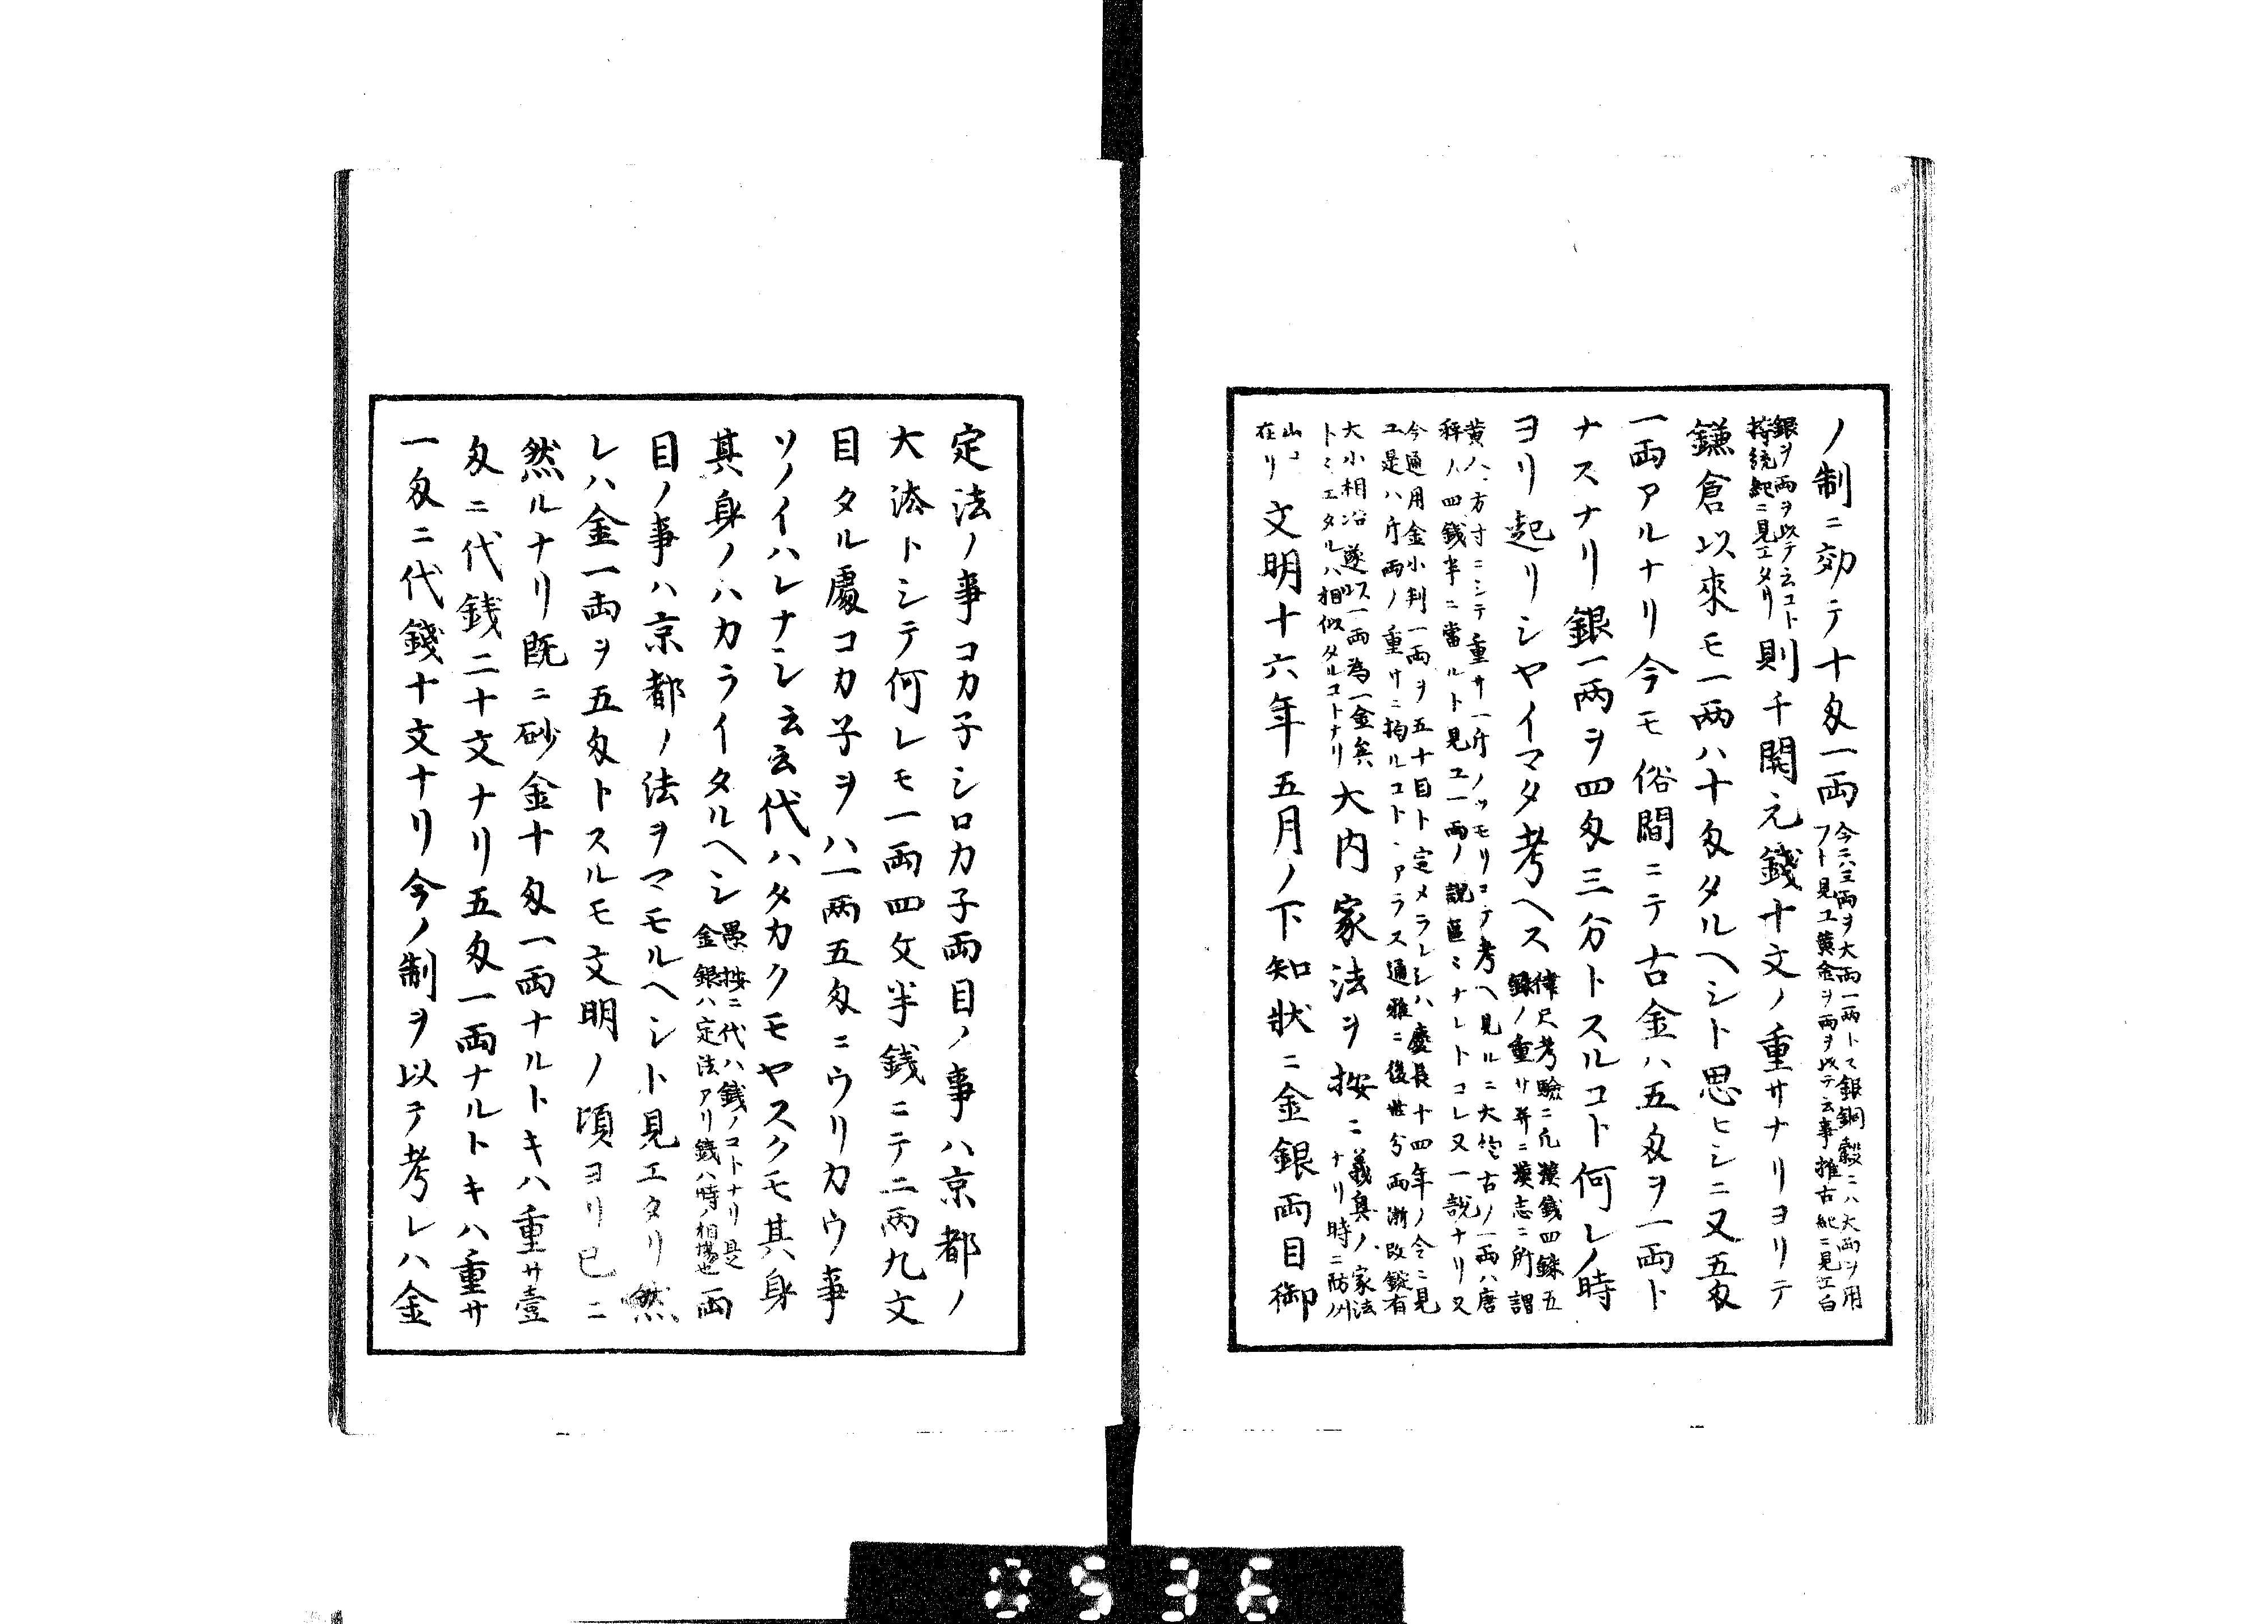 ノ制ニ効テ十匁一両今ニハ三両ヲ大両一両トマ銀銅穀ニハ大両ヲ用
フト見ユ黄金ヲ両ヲ以テ云事推古紀ニ見エ白
銀ヲ両ヲ以テ云コト
持統紀ニ見エタリ則千開元錢十文ノ重サナリヨリテ
鎌倉以來モ一両ハ十匁タルヘシト思ヒシニ又五匁
一両アルナリ今モ俗間ニテ古金ハ五匁ヲ一両ト
ナスナリ銀一両ヲ四匁三分トスルコト何レノ時
ヨリ起リシヤイマタ考ヘス律尺考驗ニ凡漢錢四銖五
銖ノ重サ并ニ漢志ニ所謂
黄ノ方寸ニシテ重サ一斤ノツモリニテ考ヘ見ルニ大古ノ一両ハ唐
秤ノ四錢半ニ當ルト見ユ一両ノ説區ミナレトコレ又一説ナリ又
今通用金小判一両ヲ五十目ト定メラレシハ慶長十四年ノ令ニ見
ユ是ハ斤両ノ重サニ拘ルコトアラス通雅ニ後世分両漸改錠有
大小相沿遂以一両為一金矣
トミエタルハ相似タルコトナリ大内家法ヲ按ニ義興ノ家法
ナリ時ニ防州
山口
在リ文明十六年五月ノ下知狀ニ金銀両目御
定法ノ事コカ子シロカ子両目ノ事ハ京都ノ
大法トシテ何レモ一両四文半銭ニテ二両九文
目タル處コカ子ヲハ一両五匁ニウリカウ事
ソノイハレナシ云云代ハタカクモヤスクモ其身
其身ノハカライタルヘシ愚按ニ代ハ銭ノコトナリ是
金銀ハ定法アリ錢ハ時ノ相場也両
目ノ事ハ京都ノ法ヲマモルヘシト見エタリ然
レハ金一両ヲ五匁トスルモ文明ノ頃ヨリ已ニ
然ルナリ既ニ砂金十匁一両ナルトキハ重サ壹
匁ニ代銭二十文ナリ五匁一両ナルトキハ重サ
一匁ニ代錢十文ナリ今ノ制ヲ以テ考レハ金
0536